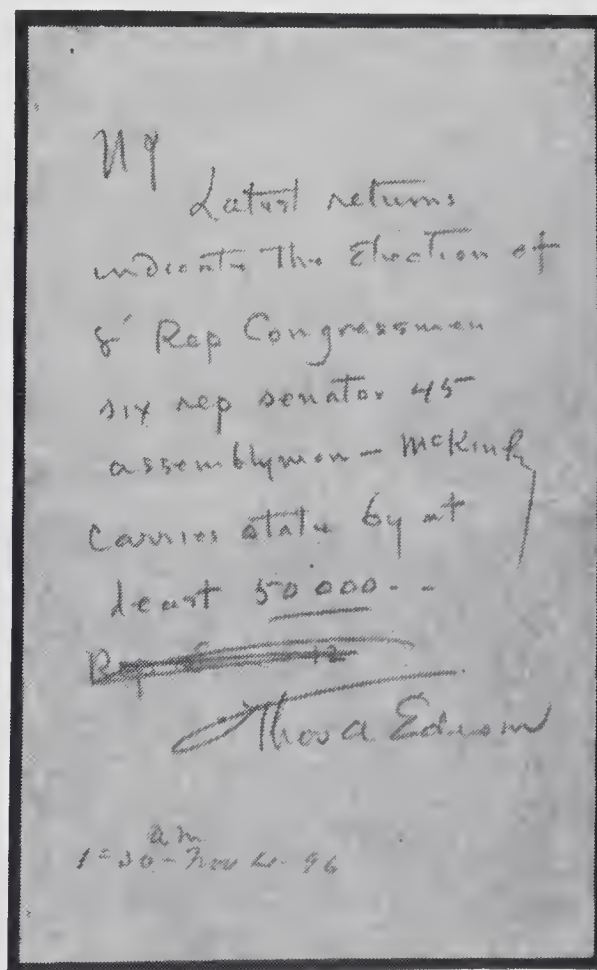 NY
Latest returns
indicate the Election of
8 Rep Congressmen
six rep senator 45
assemblymen — McKinly
carries state by at
least 50 000 - -
Rep 12
Thos A Edison
am
1=30 - Nov 4 - 96